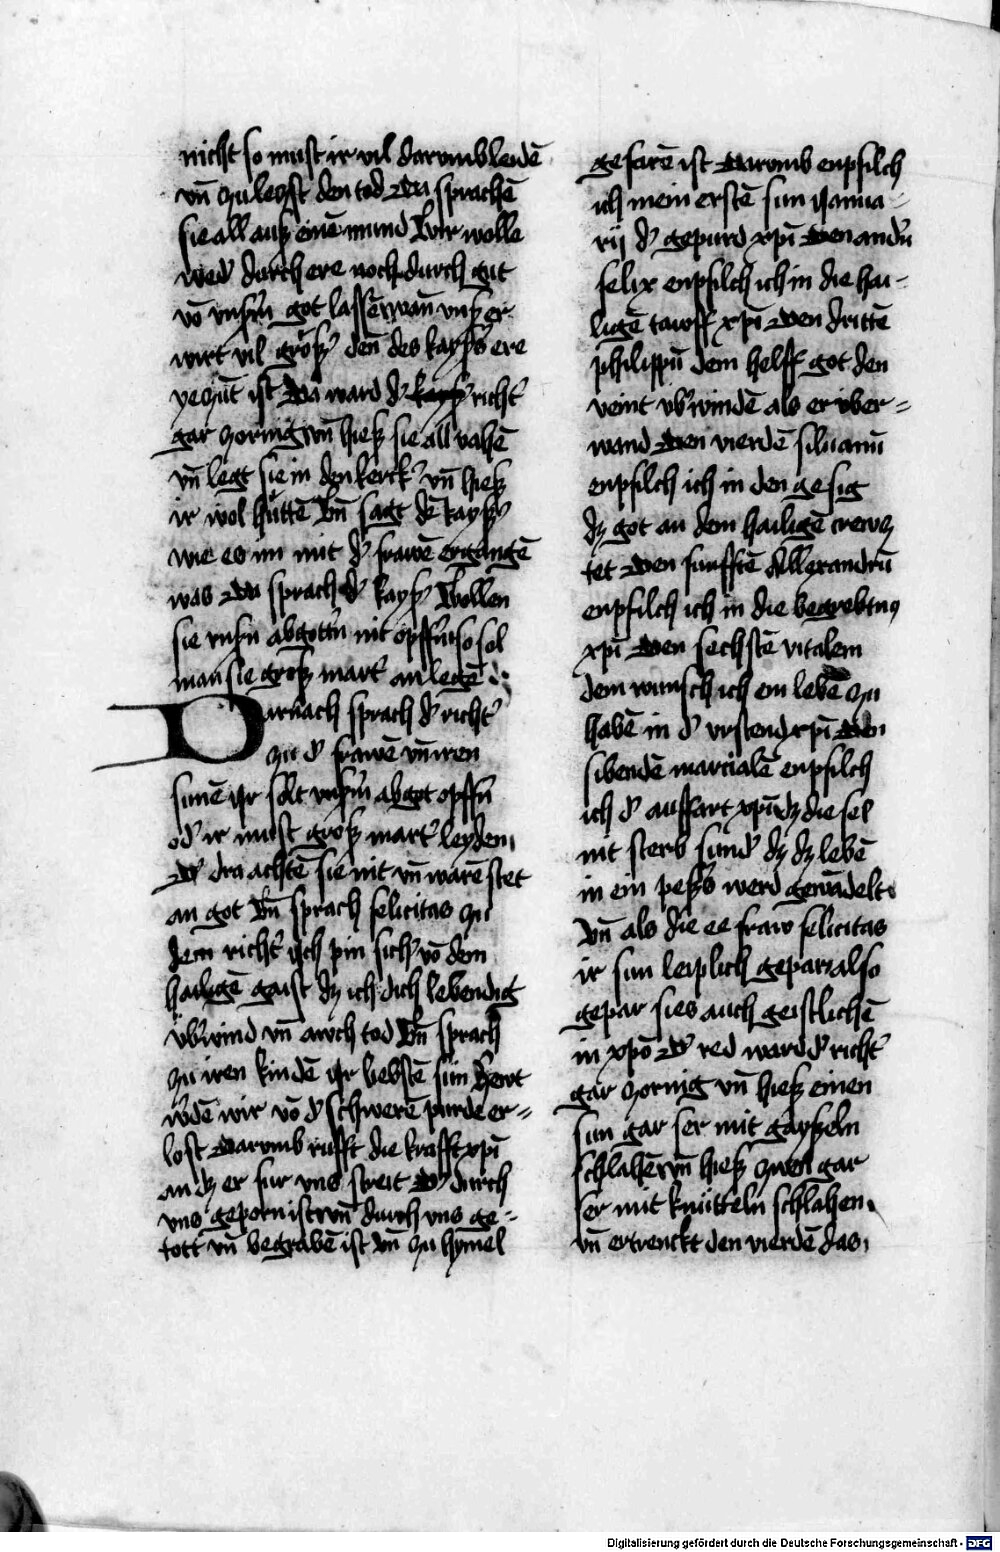 nicht so must ir vil darumb leidē
vn̄ zu letzst den tod Da sprachē
sie all auß einē mund Wir wolle
wed' durch ere noch durch gut
vō vnsm̄ got lassē wan̄ vnß er
wirt vil größ' den̄ des kayss's ere
yezūt ist Da ward d' richt'
gar zornig vn̄ hieß sie all vahē
vn̄ legt sie in den kerck' vn̄ hieß
ir wol hüttē Vn̄ sagt dē kayss'
wie es im mit d' frawē ergangē
was Da sprach d' kayss' Wollen
sie vnsn̄ abgottn̄ nit opffn̄ so sol
man sie groß mart' an legē
Darnach sprach d' richt'
zu d' frawē vn̄ iren
sunē Ir solt vnsm̄ abgot opffn̄
od' ir must groß mart' leyden
D' dra achtē sie nit vn̄ warē stet
an got Vn̄ sprach felicitas zu
dem richt' Ich pin sich' vō dem
hailigē gaist dz ich dich lebendig
vb'wind vn̄ auch tod Vn̄ sprach
zu iren kindē Ir liebstē sün Hewt
w'dē wir vō d' schwerē purde er=
lost Darumb rufft die krafft xp̄i
an dz er fur vns streit D' durch
vns geporn ist vn̄ durch vns ge=
tott vn̄ begrabē ist Vn̄ zu hymel
gefarē ist Darumb enpfilch
ich mein erstē sun Janua=
rij d' gepurd xp̄i Den and'n
felix enpfilch ich in die hai=
ligē tawff xp̄i Den drittē
philippū dem helff got den
veint vb'windē als er vber=
wand Den vierdē siluanū
enpfilch ich in den gesig
dz got an dem hailigē crewtz
tet Den funfftē Allexandrū
enpfilch ich in die begrebtnus
xp̄i Den sechstē vitalem
dem wunsch ich ein lebē zu
habē in d' vrstend xp̄i Den
sibendē marcialē enpfilch
ich d' auffart xp̄i dz die sel
nit sterb sund' dz dz lebē
in ein pess's werd gewādelt
Vn̄ als die ee fraw felicitas
ir sun leiplich gepar also
gepar sies auch geistlichē
in xp̄o D' red ward d' richt'
gar zornig vn̄ hieß einen
sun gar ser mit gayseln
schlahē vn̄ hieß zwen gar
ser mit knütteln schlahen
vn̄ ertrenckt den vierdē das
Digitalisierung gefördert durch die Deutsche Forschungsgemeinschaft - DFG